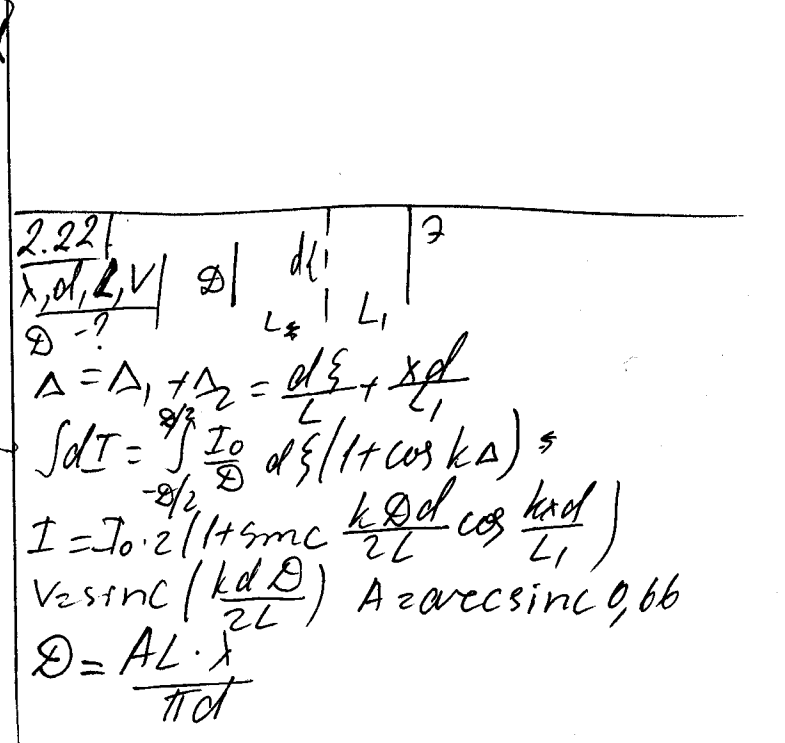 2.22
λ, d, L, V   D   d{   Э
D - ?   L   L₁
Δ = Δ₁ + Δ₂ = dξ/L + xd/L₁
∫dI = ∫_{-D/2}^{D/2} I₀/D dξ(1 + cos kΔ) =
I = I₀·2(1 + sinc kDd/2L cos kxd/L₁)
V = sinc(kdD/2L)   A = arcsinc 0,66
D = AL·λ/πd